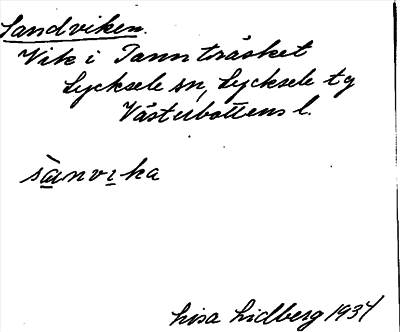 Sandviken.
Vik i Tannträsket
Lycksele sn, Lycksele tg
Västerbottens l.
sànvıka
Lisa Lidberg 1937